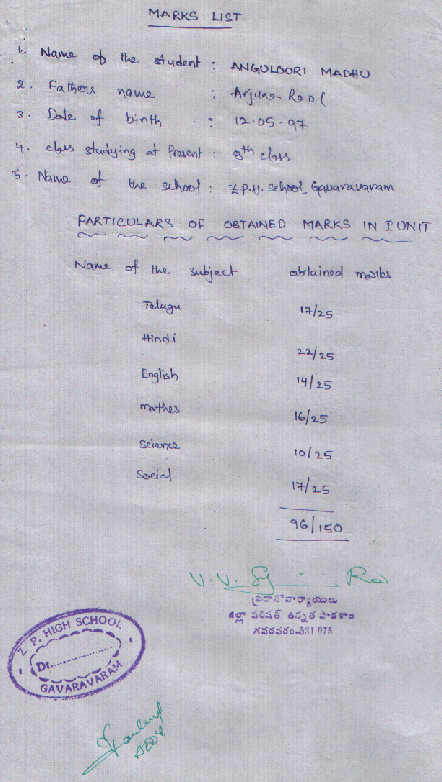 MARKS LIST
1. Name of the student : ANGULOORI MADHU
2. Fathers name :
3. Date of birth : 12.05.97
4. class studying at Present : 8th class
5. Name of the school : Z.P.H. School, Gavaravaram
PARTICULARS OF OBTAINED MARKS IN I UNIT
Name of the subject obtained marks
Telugu 17/25
Hindi 22/25
English 14/25
mathes 16/25
Science 10/25
Social 17/25
96/150
V. V.
ప్రధానోపాధ్యాయులు
జిల్లా పరిషత్ ఉన్నత పాఠశాల
గవరవరం
Z. P. HIGH SCHOOL
Dt.............
GAVARAVARAM